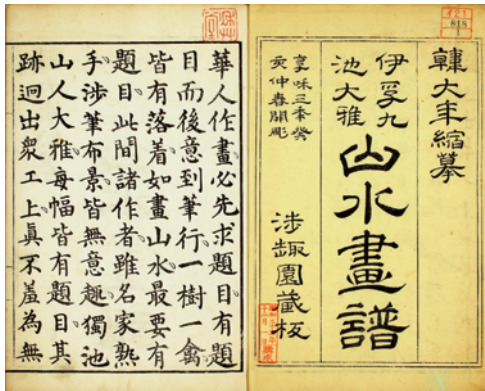 韓大年縮摹
伊孚九
池大雅
山水畫譜
享咊三秊癸
亥仲春開彫
涉趣園藏板
421
818
1
華人作畫必先求題目有題
目而後意到筆行一樹一禽
皆有落着如畫山水最要有
題目此間諸作者雖名家熟
手涉筆布景皆無意趣獨池
山人大雅每幅皆有題目其
跡迥出衆工上眞不羞為無